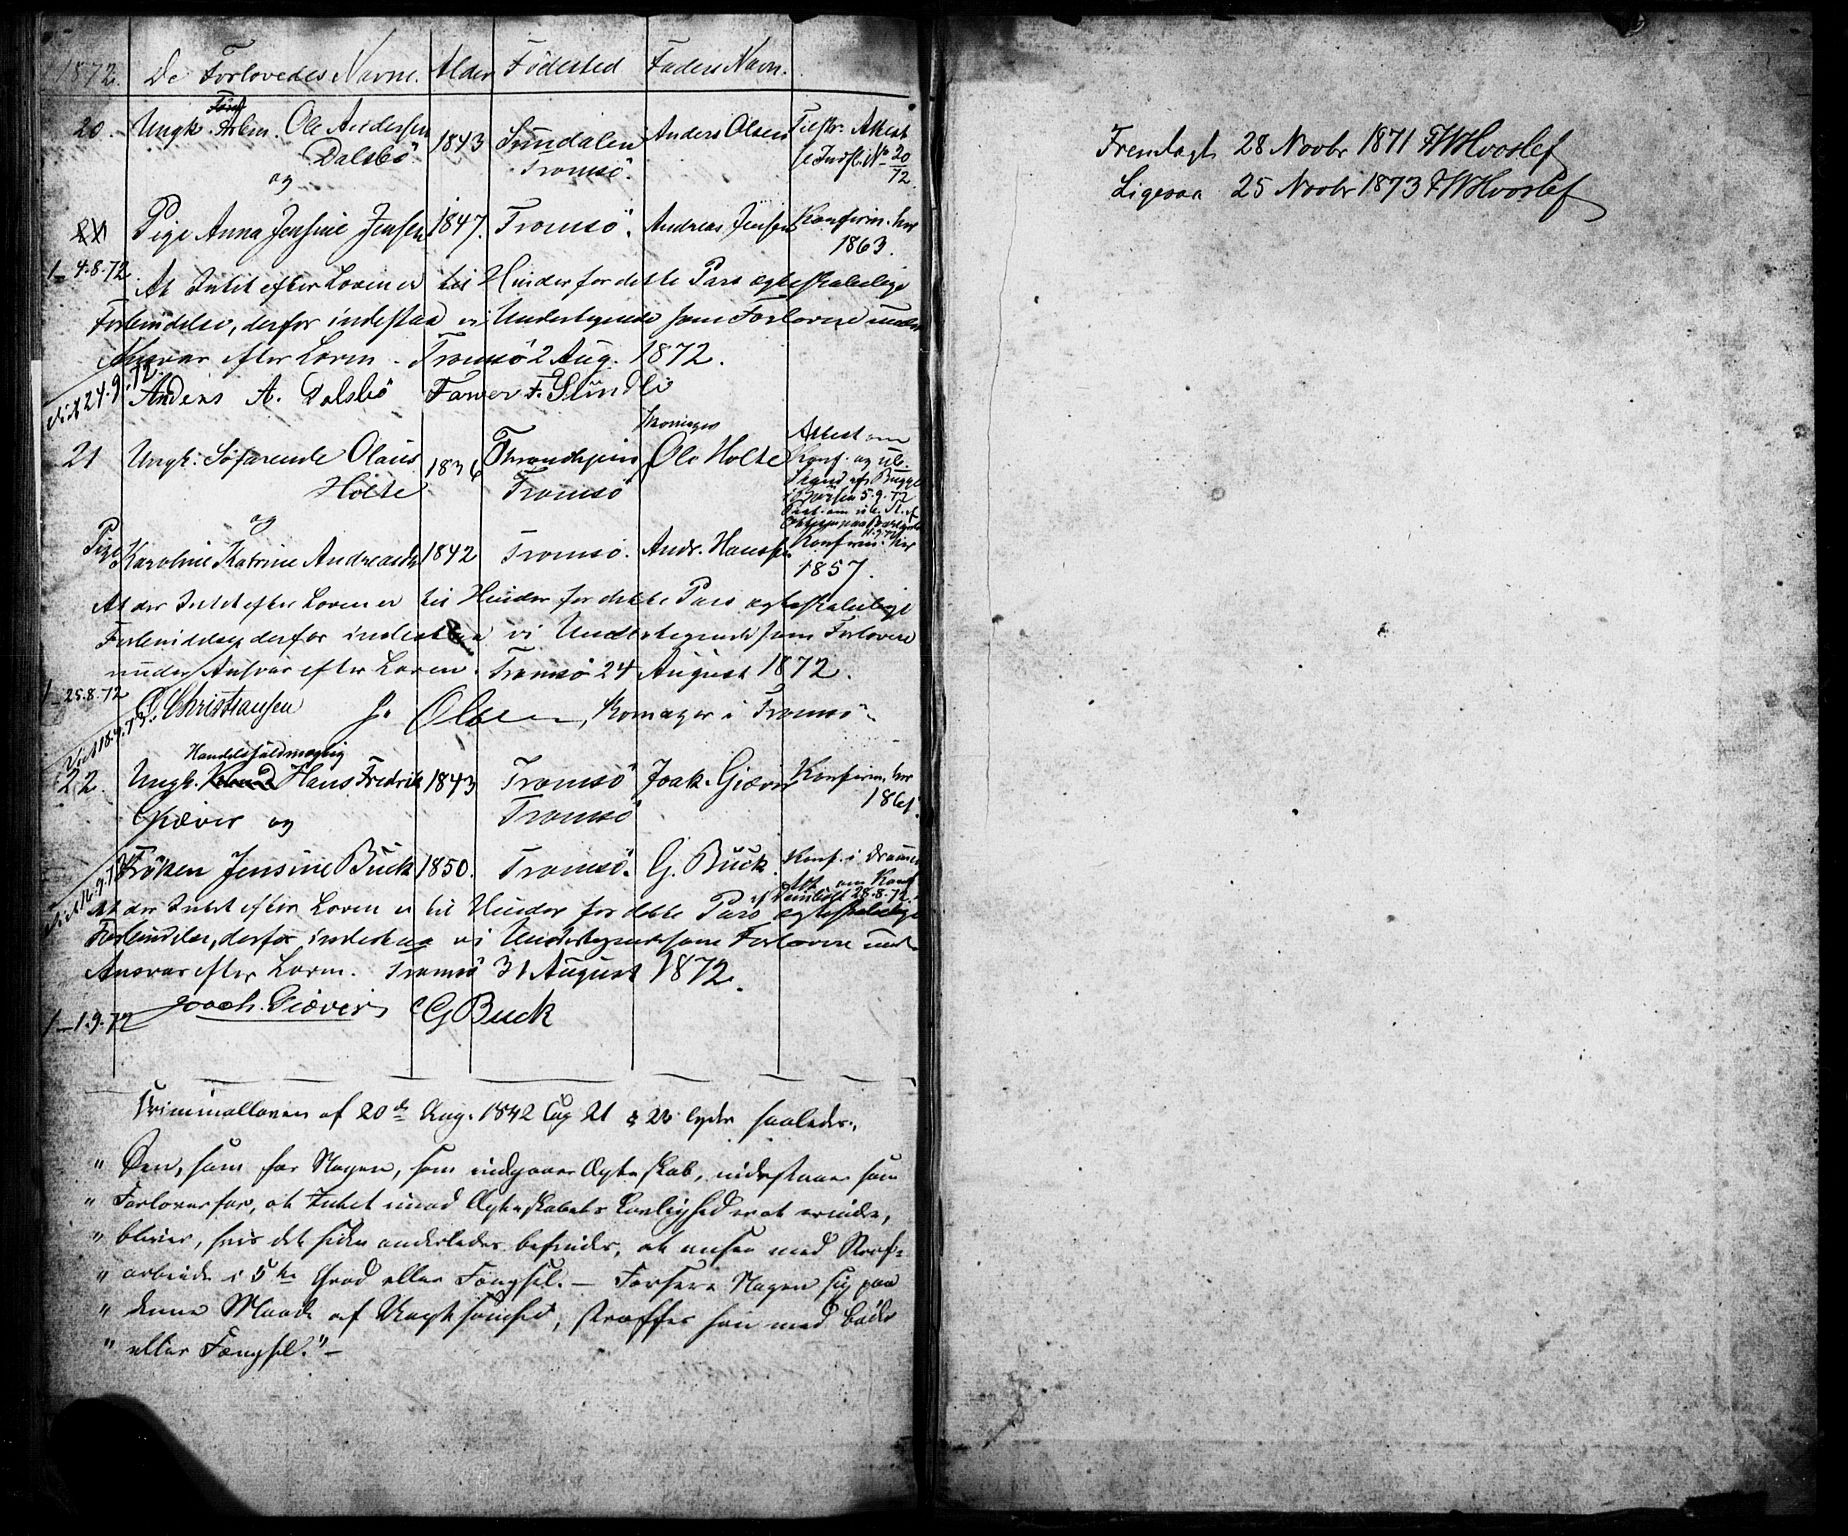 1872. De Forlovedes Navne. Alder Födested Faders Navn.
20. Ungk. Arbm. Ole Andersen 1843 Sundalen Anders Olsen Tilstr. Attest
Dalsbö Tromsö. se Indfl. No 20/72
og
Pige Anna Jensine Jensen 1847. Tromsö. Andreas Jensen Konfirm. her
1863.
1_ 4.8.72
At Intet efter Loven er til Hinder for dette Pars ægteskabelige
Forbindelse, derfor indestaa vi Undertegnede som Forlovere under
Ansvar efter Loven. Tromsö 2 Aug. 1872.
Viet 24.9.72.
Anders A. Dalsbö
21 Ungk. Söfarende Olaus 1836 Throndhjem Ole Holte Attest om
Holte Tromsö Konf. og
5.9.72
og
Pige Karoline Katrine Andreasdr 1842 Tromsö. Andr. Hansen Konfirm. her
1857.
At der Intet efter Loven er til Hinder for dette Pars ægteskabelige
Forbindelse derfor indestaa vi Undertegnede som Forlovere
under Ansvar efter Loven. Tromsö 24 August 1872.
1_ 25.8.72
C. Christiansen J. Olsen, Komager i Tromsö
Handelsfuldmægtig
22. Ungk. Hans Fredrik 1843 Tromsö Joak. Giæver Konfirm. her
Giæver og Tromsö 1861.
Fröken Jensine Buck 1850. Tromsö. G. Buck. Konf. i Drammen
Att. om Konf.
28.8.72.
At der Intet efter Loven er til Hinder for dette Pars ægteskabelige
Forbindelse, derfor indestaa vi Undertegnede som Forlovere under
Ansvar efter Loven. Tromsö 31 August 1872.
Joach. Giæver G Buck
1_ 1.9.72
Criminalloven af 20de Aug. 1842 Cap 21 § 22 lyder saaledes:,
" Den, som for Nogen, som indgaaer Ægteskab, indestaaer som
" Forlover for, at Intet imod Ægteskabets Lovlighed er at erindre,
" bliver, hvis det siden anderledes befindes, at ansee med Straf=
" arbeide i 5te Grad eller Fængsel. — Forseer Nogen sig paa
" denne Maade af Uagtsomhed, straffes han med Böder
" eller Fængsel." —
Fremlagt 28 Novbr 1871 FWHvoslef
Ligesaa 25 Novbr 1873 FWHvoslef